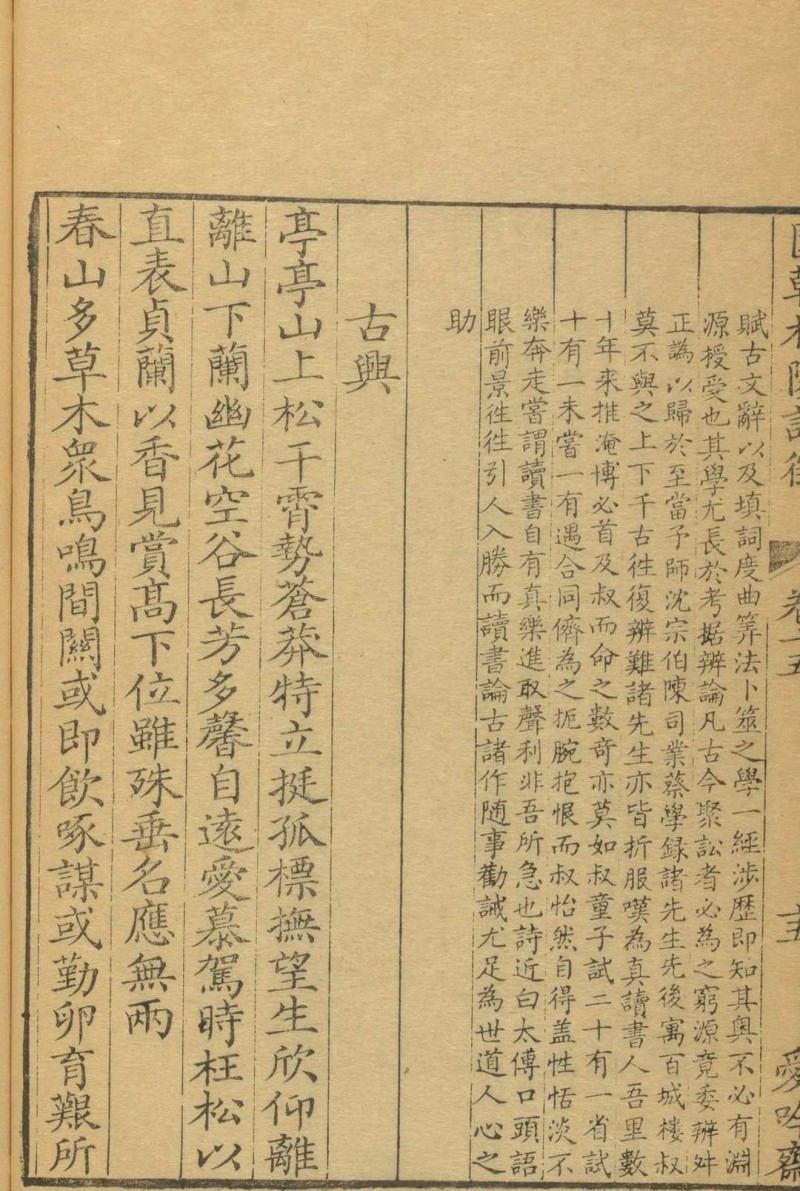 國朝松陵詩徵 卷十五 十五 愛吟齋
賦古文辭以及填詞度曲筭法卜筮之學一經涉歷即知其奧不必有淵
源授受也其學尤長於考据辨論凡古今聚訟者必為之窮源竟委辨舛
正譌以歸於至當予師沈宗伯陳司業蔡學録諸先生先後寓百城樓叔
莫不與之上下千古徃復辨難諸先生亦皆折服嘆為真讀書人吾里數
十年来推淹博必首及叔而命之數奇亦莫如叔童子試二十有一省試
十有一未嘗一有遇合同儕為之扼腕抱恨而叔怡然自得盖性恬淡不
樂奔走嘗謂讀書自有真樂進取聲利非吾所急也詩近白太傅口頭語
眼前景徃徃引人入勝而讀書論古諸作随事勸誡尤足為世道人心之
助
古興
亭亭山上松干霄勢蒼莽特立挺孤標撫望生欣仰離
離山下蘭幽花空谷長芳多馨自遠愛慕駕時枉松以
直表貞蘭以香見賞髙下位雖殊垂名應無兩
春山多草木衆鳥鳴間關或即飲啄謀或勤卵育艱所